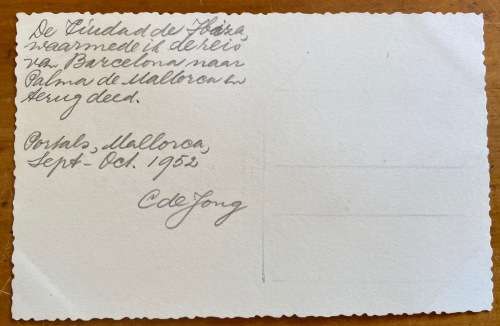 De Ciudad de Ibiza,
waarmede ik de reis
van Barcelona naar
Palma de Mallorca en
terug deed.
Portals, Mallorca,
Sept-Oct. 1952
C de Jong